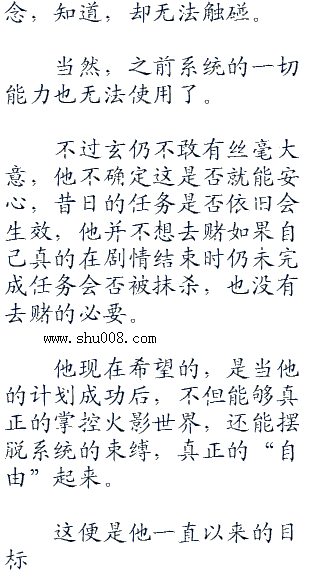 念，知道，却无法触碰。
当然，之前系统的一切
能力也无法使用了。
不过玄仍不敢有丝毫大
意，他不确定这是否就能安
心，昔日的任务是否依旧会
生效，他并不想去赌如果自
己真的在剧情结束时仍未完
成任务会否被抹杀，也没有
去赌的必要。
www.shu008.com
他现在希望的，是当他
的计划成功后，不但能够真
正的掌控火影世界，还能摆
脱系统的束缚，真正的“自
由”起来。
这便是他一直以来的目
标